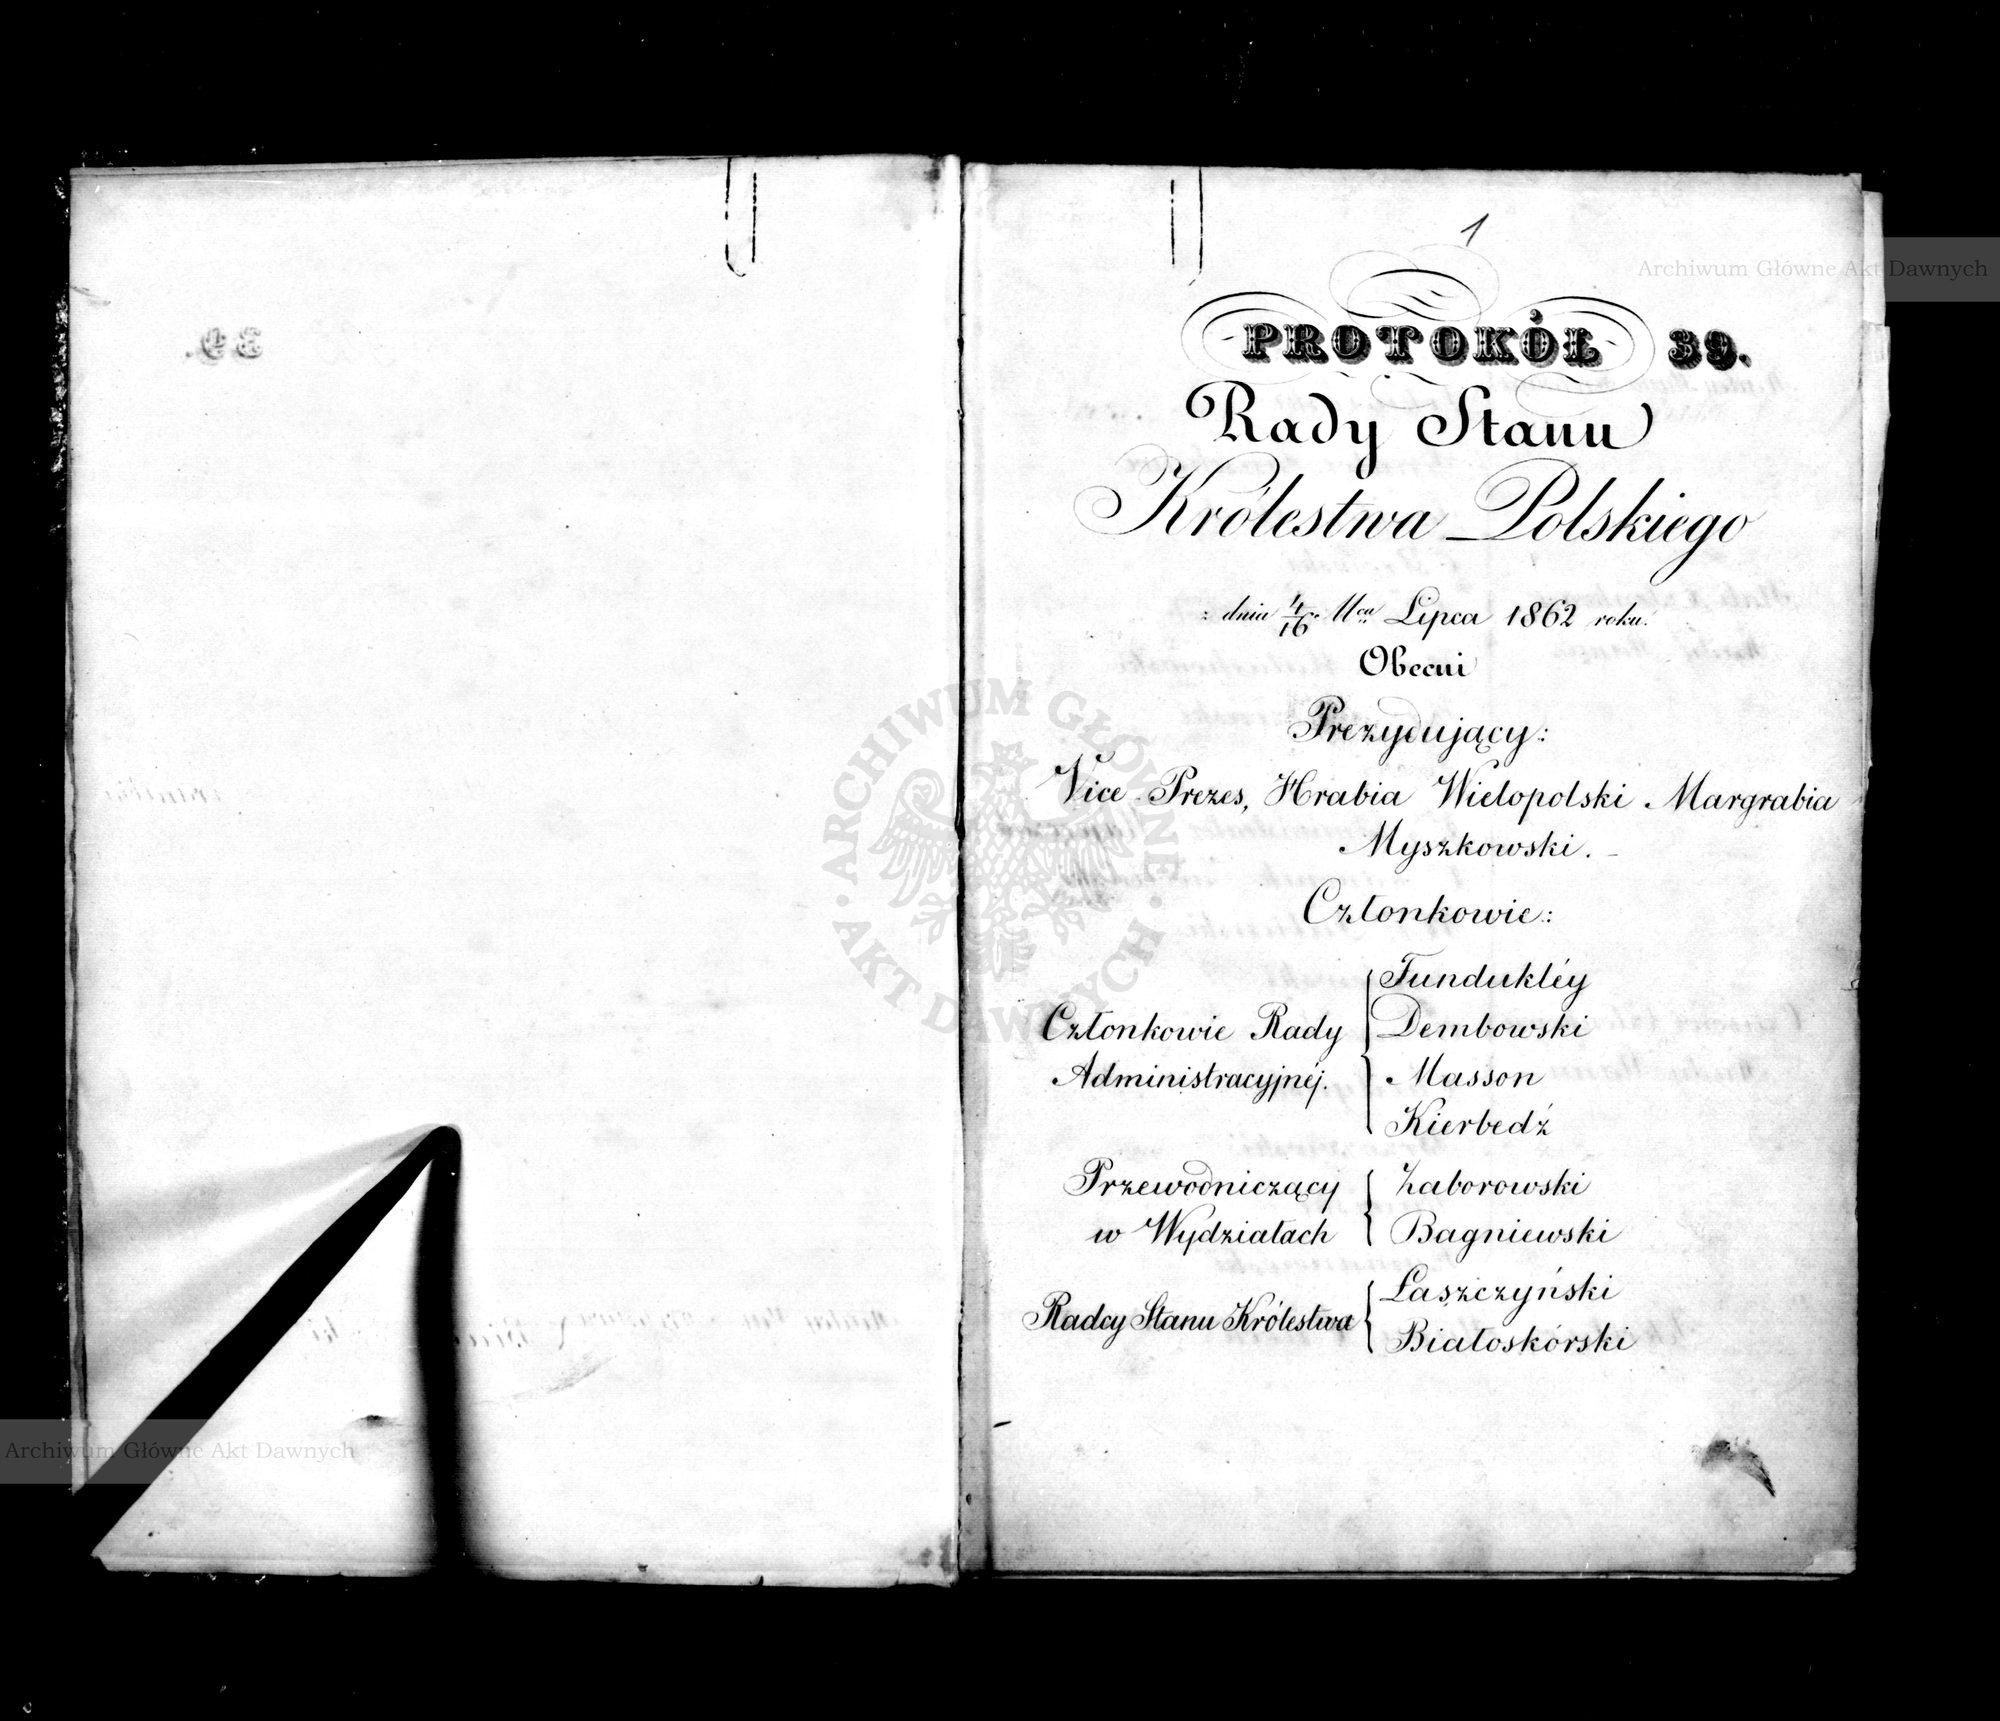 1
PROTOKÓŁ 39.
Rady Stanu
Królestwa Polskiego
z dnia 4/16 Mca Lipca 1862 roku.
Obecni
Prezydujący:
Vice Prezes, Hrabia Wielopolski Margrabia
Myszkowski.
Członkowie:
Członkowie Rady
Administracyjnéj.
Fundukléy
Dembowski
Masson
Kierbedź
Przewodniczący
w Wydziałach
Zaborowski
Bagniewski
Radcy Stanu Królestwa
Łaszczyński
Białoskórski
Archiwum Główne Akt Dawnych
ARCHIWUM GŁÓWNE
AKT DAWNYCH
Archiwum Główne Akt Dawnych